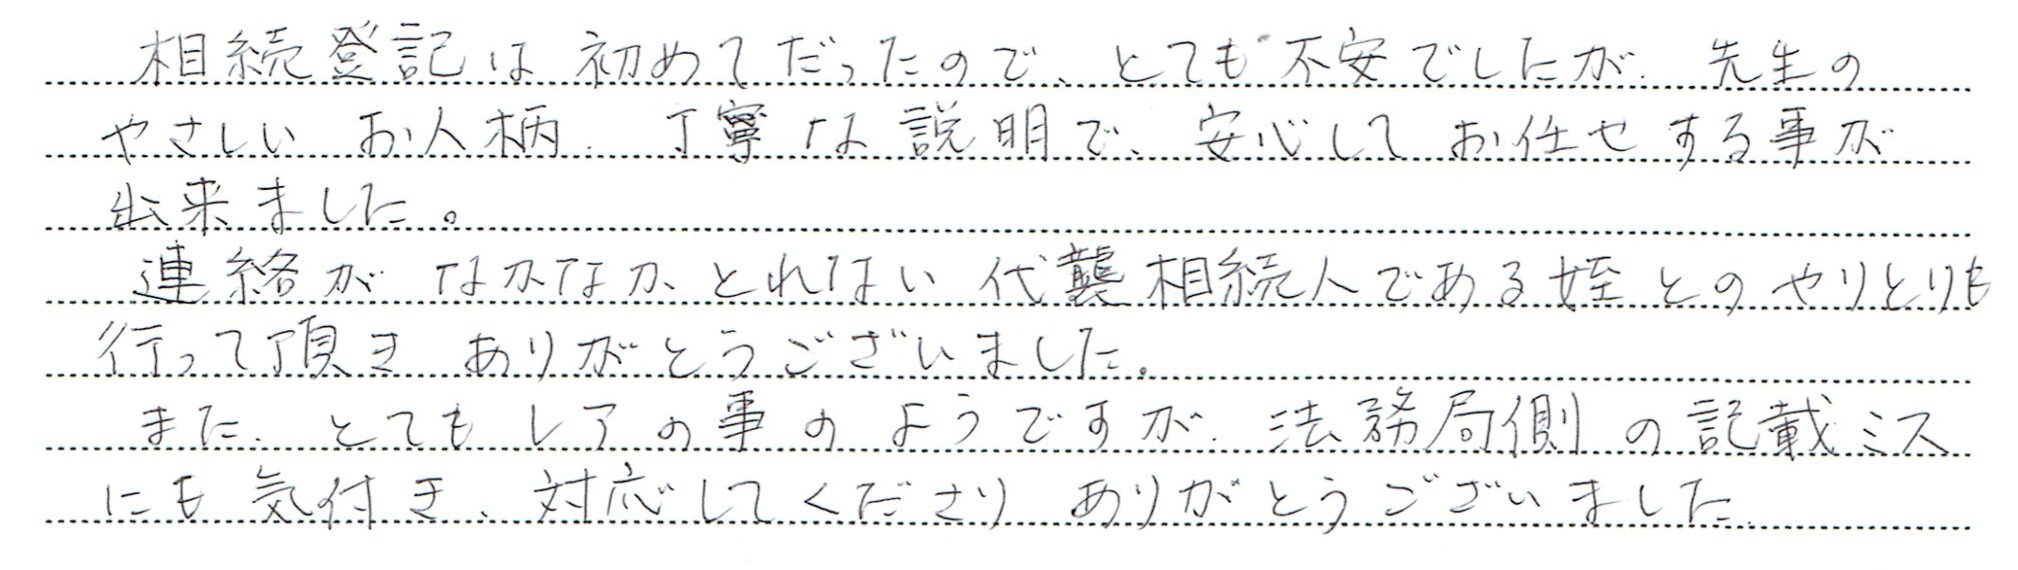 相続登記は初めてだったので、とても不安でしたが、先生の
やさしいお人柄、丁寧な説明で、安心してお任せする事が
出来ました。
連絡がなかなかとれない代襲相続人である姪とのやりとりも
行って頂きありがとうございました。
また、とてもレアの事のようですが、法務局側の記載ミス
にも気付き、対応してくださりありがとうございました。